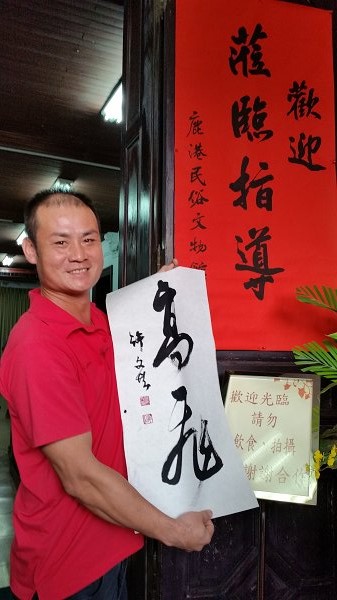 歡迎
蒞臨指導
鹿港民俗文物館
高飛
許文
歡迎光臨
請勿
飲食、拍攝
謝謝合作